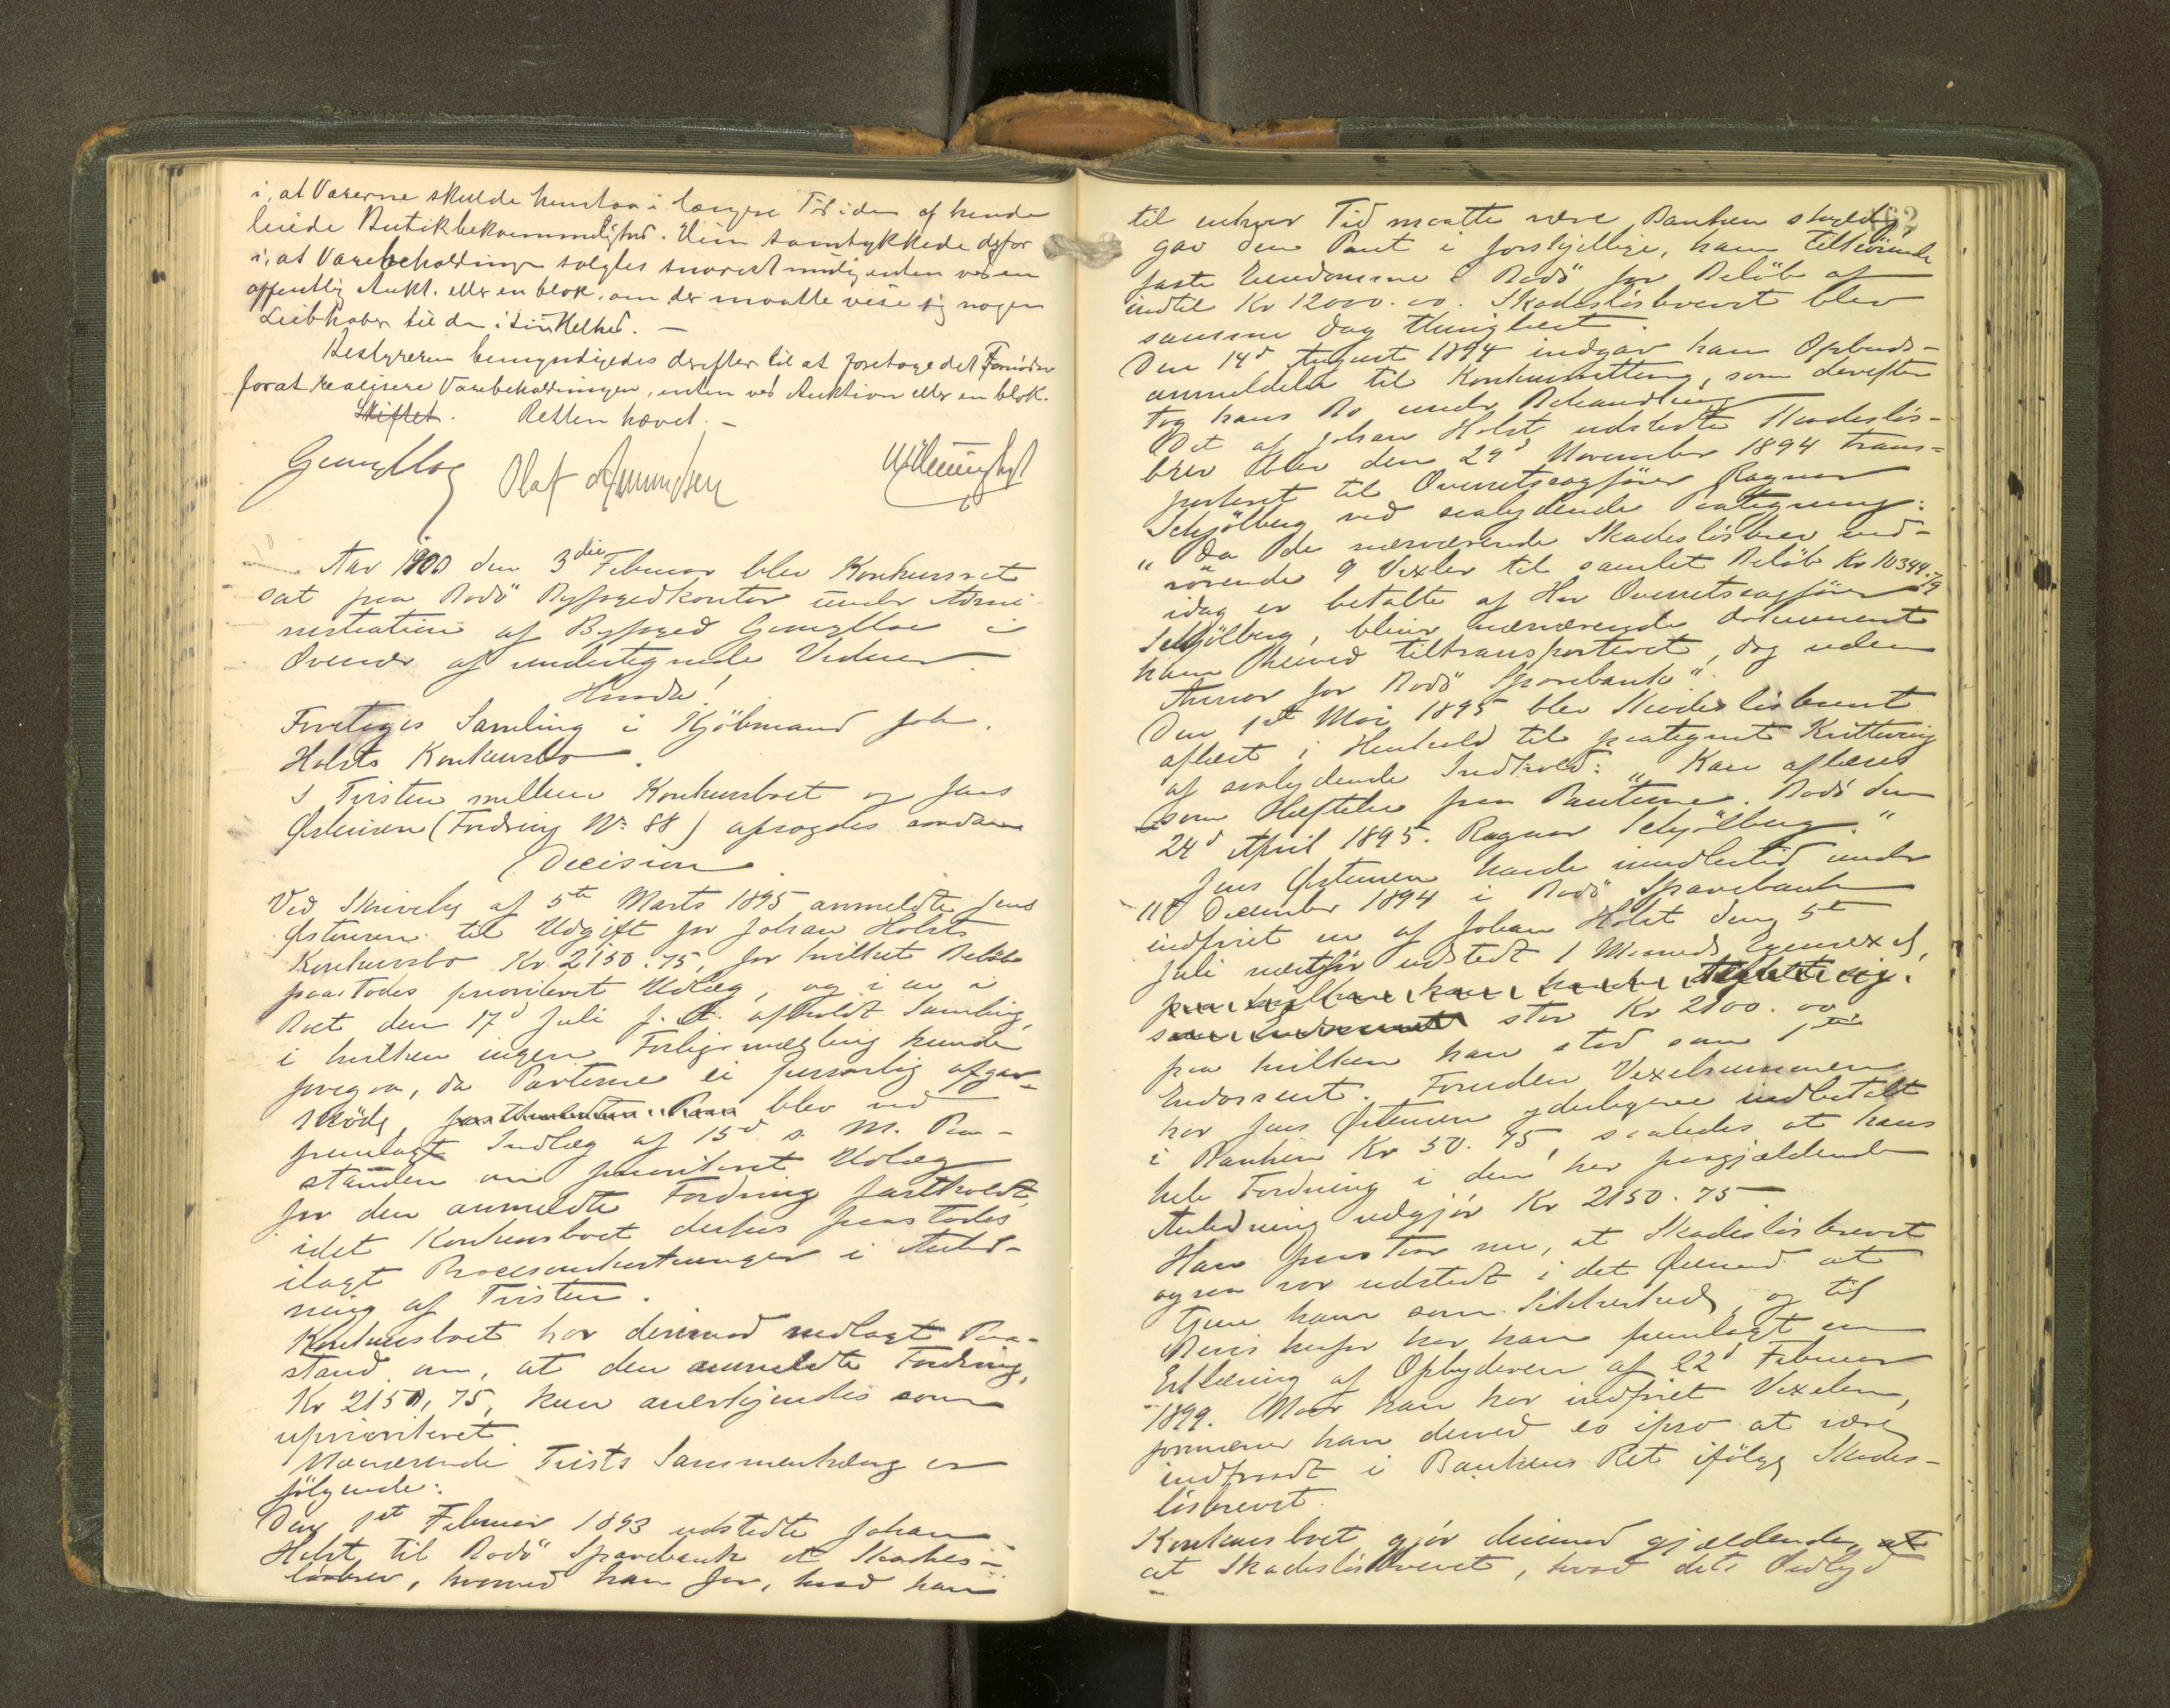 i, at Varerne skulde henstaa i længere Tid i den af hende
leiede Butikbekvemmelighed. Hun samtykkede derfor
i, at Varebeholdningen solgtes snarest mulig enten ved en
offentlig Aukt. eller en blok, om der maatte vise sig nogen
Liebhaber til den i sin Helhed. —
Bestyreren bemyndigedes derefter til at foretage det Fornødne
forat realisere Varebeholdningen, enten ved Auktion eller en blok.
Skiftet. Retten hævet. —
Olaf Amundsen
Aar 1900 den 3die Februar blev Konkursret
sat paa Bodö Byfogedkontor under Admi-
nistration af Byfoged i
Overvær af undertegnede Vidner
Hvorda!
Foretoges Samling i Kjöbmand Joh.
Holsts Konkursbo.
I Tvisten mellem Konkursboet og Jens
Østensen (Fordring No 88) afsagdes saadan
Decision
Ved Skrivelse af 5te Marts 1895 anmeldte Jens
Østensen til Udgift for Johan Holsts
Konkursbo Kr. 2150.75, for hvilket Beløb
paastodes prioriteret Udlæg, og i en i
Boet den 17d Juli f. A. afholdt Samling,
i hvilken ingen Forligsmægling kunde
foregaa, da Parterne ei personlig afgav
Möde, blev ved
fremlagt Indlæg af 15d s. M. Paa-
standen om prioriteret Udlæg
for den anmeldte Fordring fastholdt,
idet Konkursboet derhos paastodes
ilagt Procesomkostninger i Anled-
ning af Tvisten.
Konkursboet har derimod nedlagt Paa-
stand om, at den anmeldte Fordring,
Kr 2150,75, kun anerkjendes som
uprioriteret
Nærværende Tvists Sammenhæng er
fölgende:
Den 1st Februar 1893 udstedte Johan
Holst til Bodö Sparebank et Skades-
løsbrev, hvorved han for, hvad han
62
til enhver Tid maatte være Banken skyldig,
gav den Pant i forskjellige, ham tilhörende
faste Eiendomme i Bodö for Belöb af
indtil Kr 12000.00. Skadeslösbrevet blev
samme Dag thinglæst.
Den 14d August 1894 indgav han Opbuds-
anmeldelse til Konkursretten, som derefter
tog hans Bo under Behandling
Det af Johan Holst udstedte Skadeslös-
brev blev den 29d November 1894 trans-
porteret til Overretssagförer Ragnar
Schjölberg ved saalydende Paategning:
"Da de nærværende Skadeslösbrev ved-
rörende 9 Vexler til samlet Belöb Kr 10344.79
idag er betalte af Hr Overretssagförer
Schjölberg, bliver nærværende Dokument
ham herved tiltransporteret, dog uden
Ansvar for Bodö Sparebank".
Den 1st Mai 1895 blev Skadeslösbrevet
aflæst i Henhold til paategnet Kvittering
af saalydende Indhold: "Kan aflæses
som Heftelse paa Panterne. Bodö den
24d April 1895. Ragnar Schjölberg."
Jens Østensen havde imidlertid under
11te December 1894 i Bodö Sparebank
indfriet en af Johan Holst den 5te
Juli næstfør udstedt 1 Maaneds Egenvexel,
stor Kr 2100.00
paa hvilken han stod som 1ste
Endossent. Foruden Vexelsummen
har Jens Østensen yderligere indbetalt
i Banken Kr 50.75, saaledes at hans
hele Fordring i den her paagjældende
Anledning udgjör Kr 2150.75
Han paastaar nu, at Skadeslösbrevet
ogsaa var udstedt i det Øiemed at
tjene ham som Sikkerhed, og til
Bevis herfor har han fremlagt en
Erklæring af Opbyderen af 22d Februar
1899. Naar han har indfriet Vexelen,
formener han derved eo ipso at være
indtraadt i Bankens Ret ifölge Skades-
lösbrevet.
Konkursboet gjör derimod gjældende,
at Skadeslösbrevet, hvad dets Ordlyd